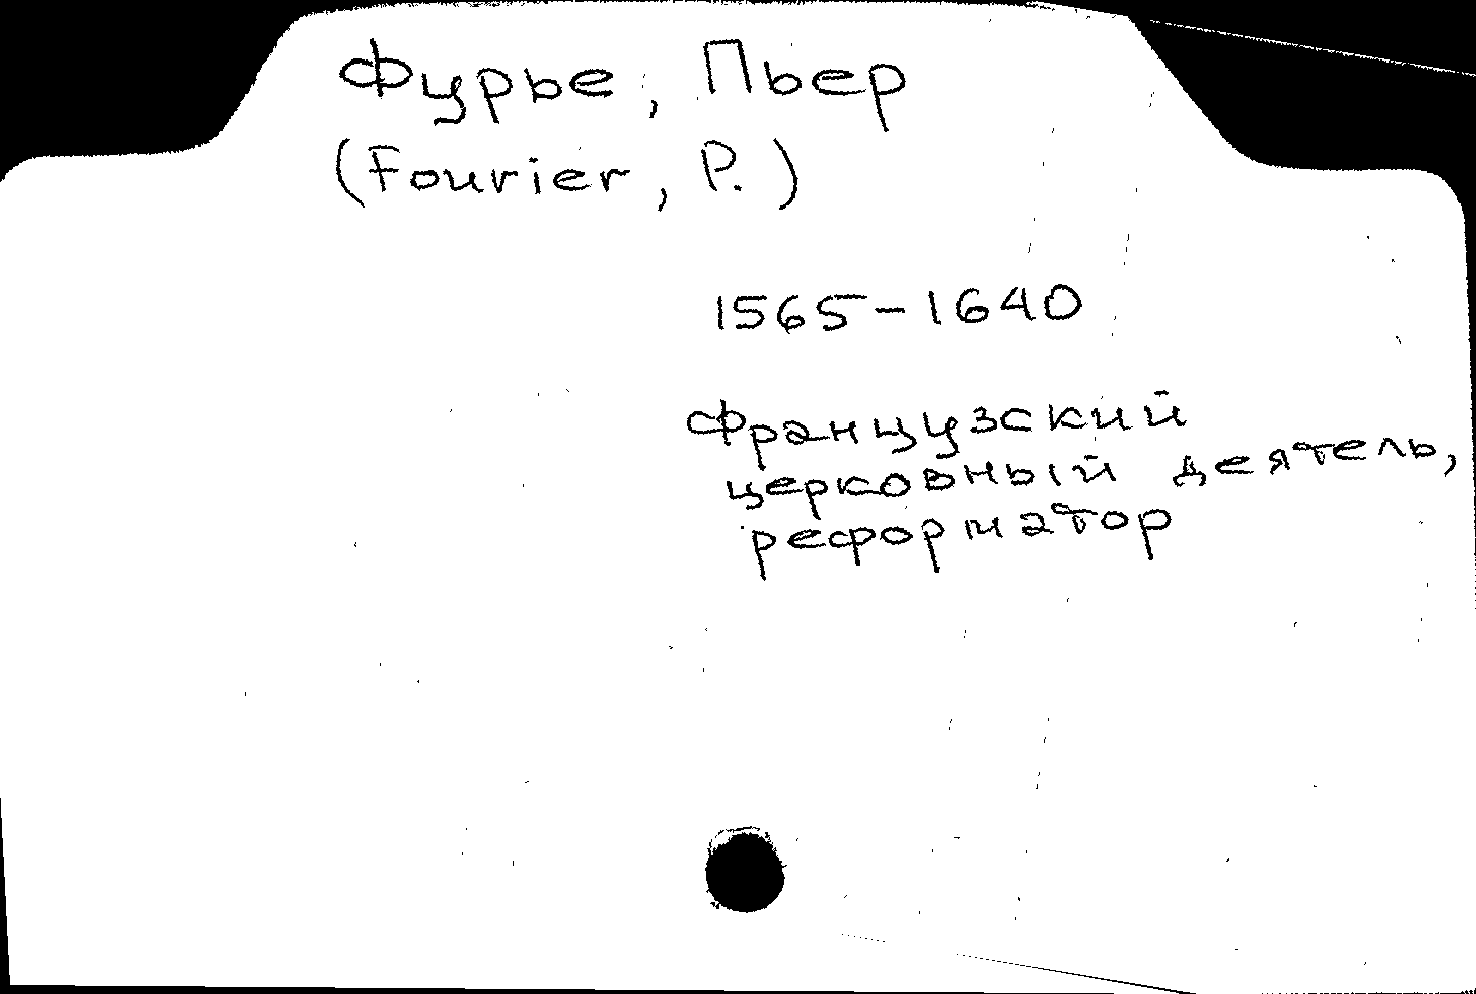 Фурье, Пьер
(Fourier, P.)
1565-1640
Французский
церковный деятель,
реформатор